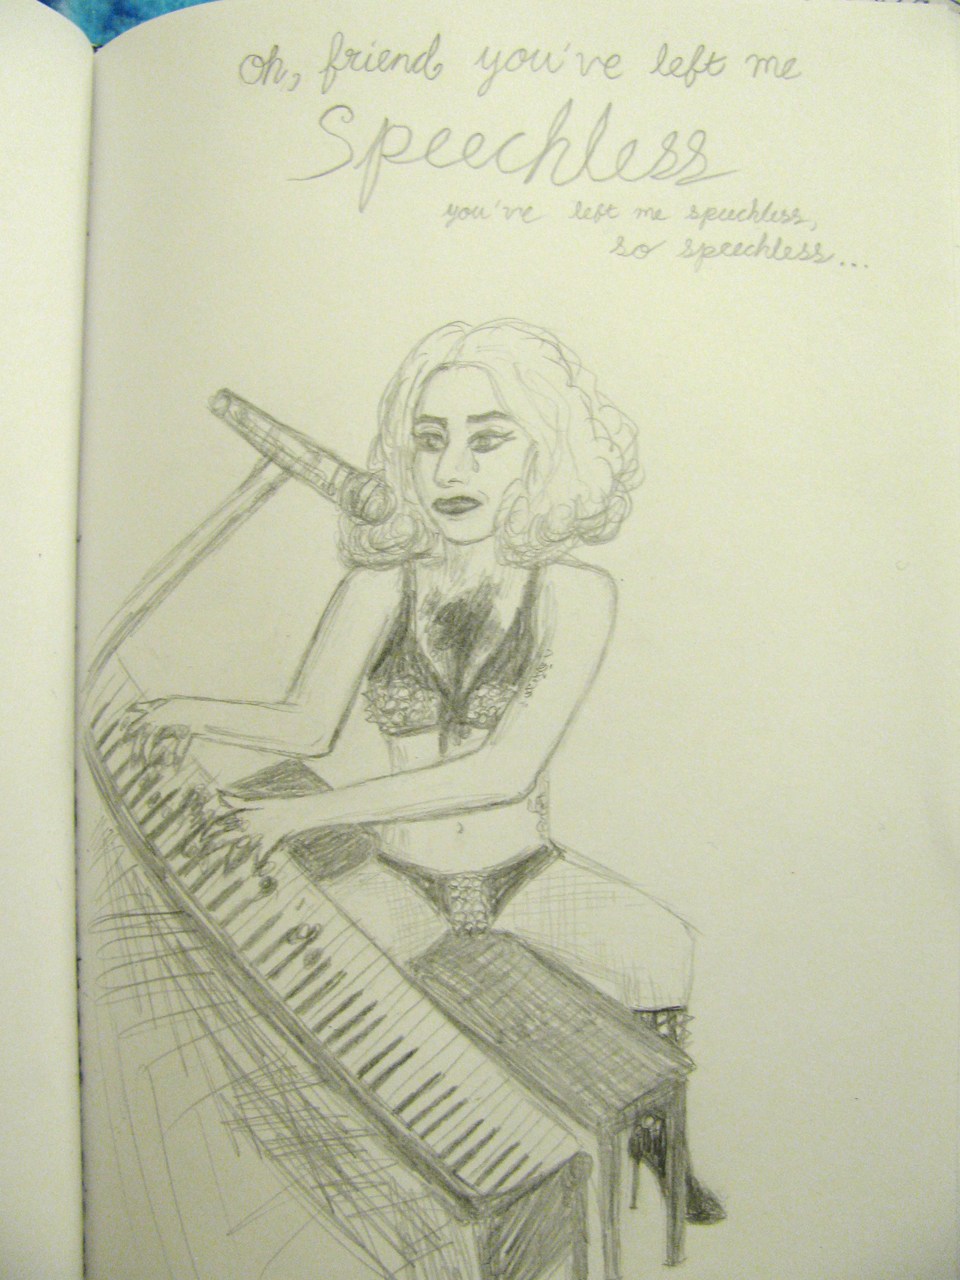 oh, friend you've left me
Speechless
you've left me speechless,
so speechless...